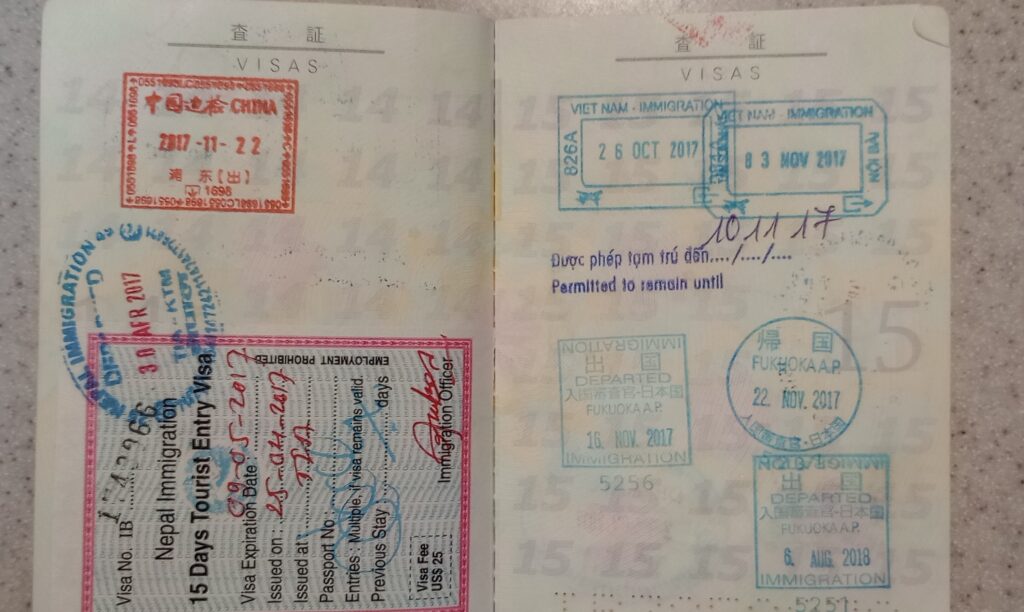 査 証
VISAS
中国边检 CHINA
2017-11-22
浦 东 [出]
1698
NEPAL IMMIGRATION
30 APR 2017
TIA - KTM
Visa No. IB
Nepal Immigration
15 Days Tourist Entry Visa
Visa Expiration Date : 09-05-2017
Issued on : 25-04-2017
Issued at : TIA
Passport No.
Entries : Multiple, if visa remains valid.
Previous Stay days
Visa Fee
US$ 25
Immigration Officer
EMPLOYMENT PROHIBITED
査 証
VISAS
VIET NAM - IMMIGRATION
826A
26 OCT 2017
VIET NAM - IMMIGRATION
03 NOV 2017
NOI BAI
10 11 17
Được phép tạm trú đến..../..../....
Permitted to remain until
IMMIGRATION
出 国
DEPARTED
入国審査官-日本国
FUKUOKA A.P.
16. NOV. 2017
IMMIGRATION
5256
帰 国
FUKUOKA A.P.
22. NOV. 2017
入国審査官-日本国
15
出 国
DEPARTED
入国審査官-日本国
FUKUOKA A.P.
6. AUG. 2018
IMMIGRATION
5251